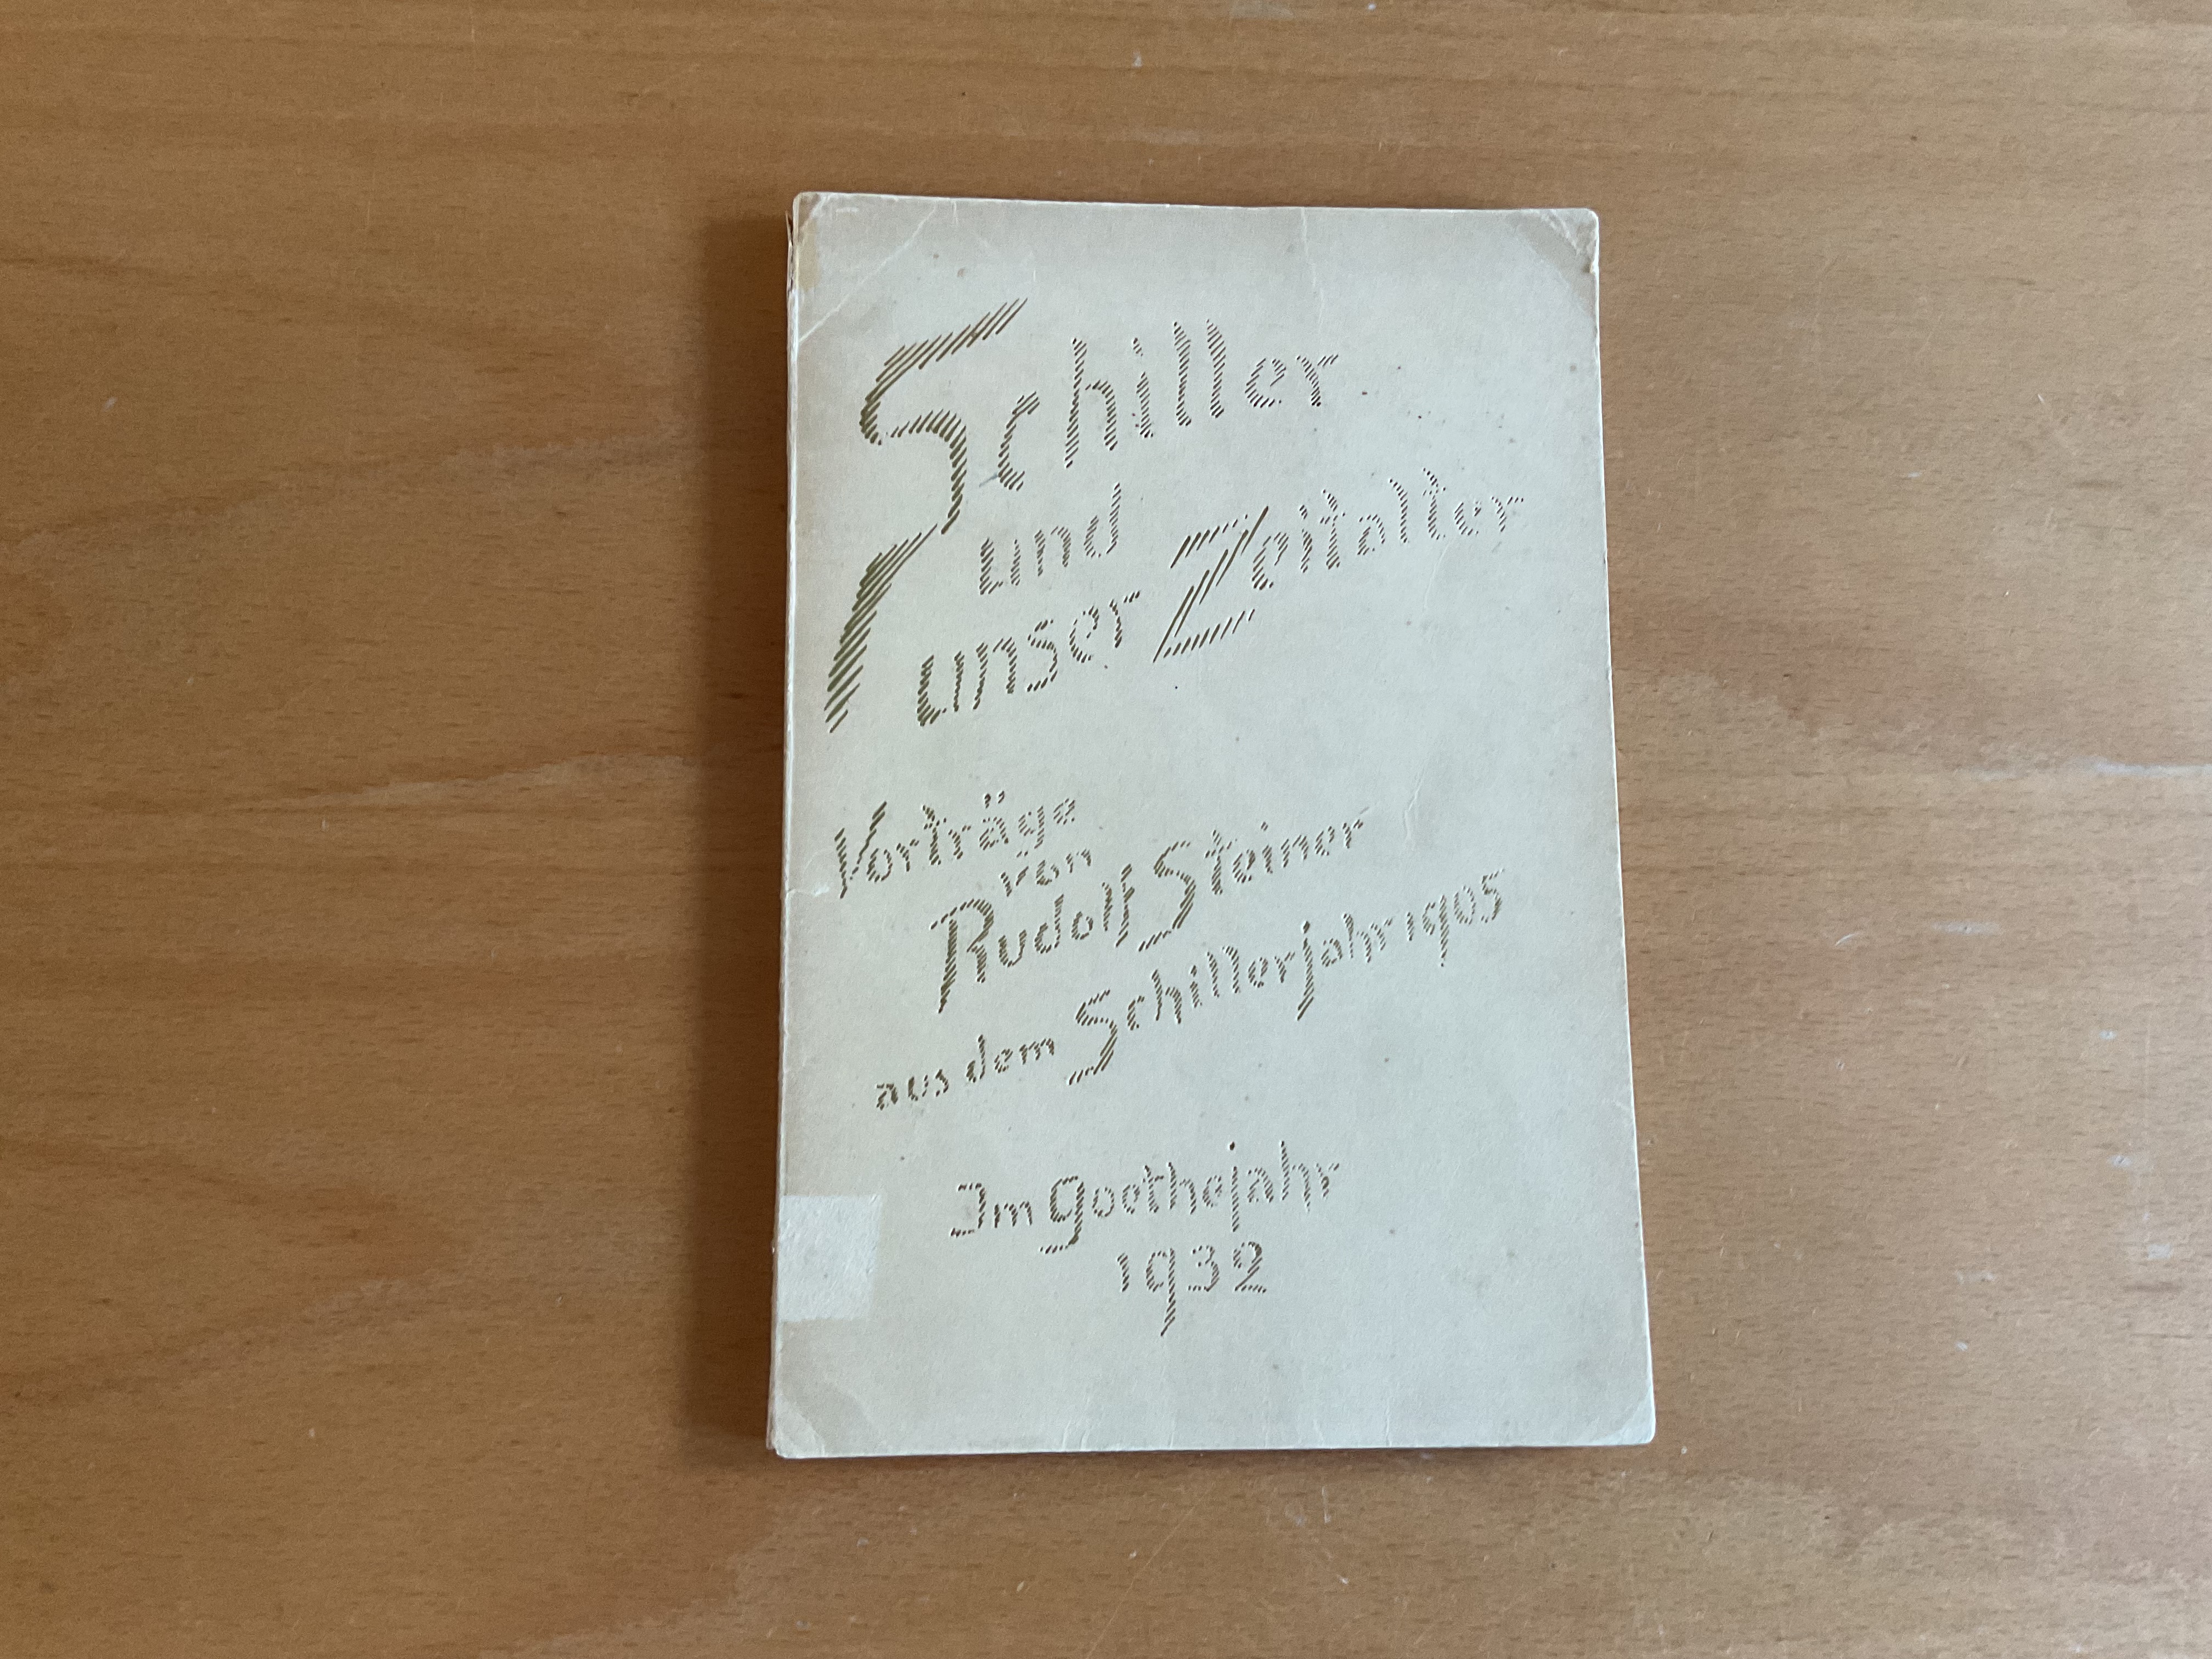 Schiller
und
unser Zeitalter
Vorträge
von
Rudolf Steiner
aus dem Schillerjahr 1905
Im Goethejahr
1932